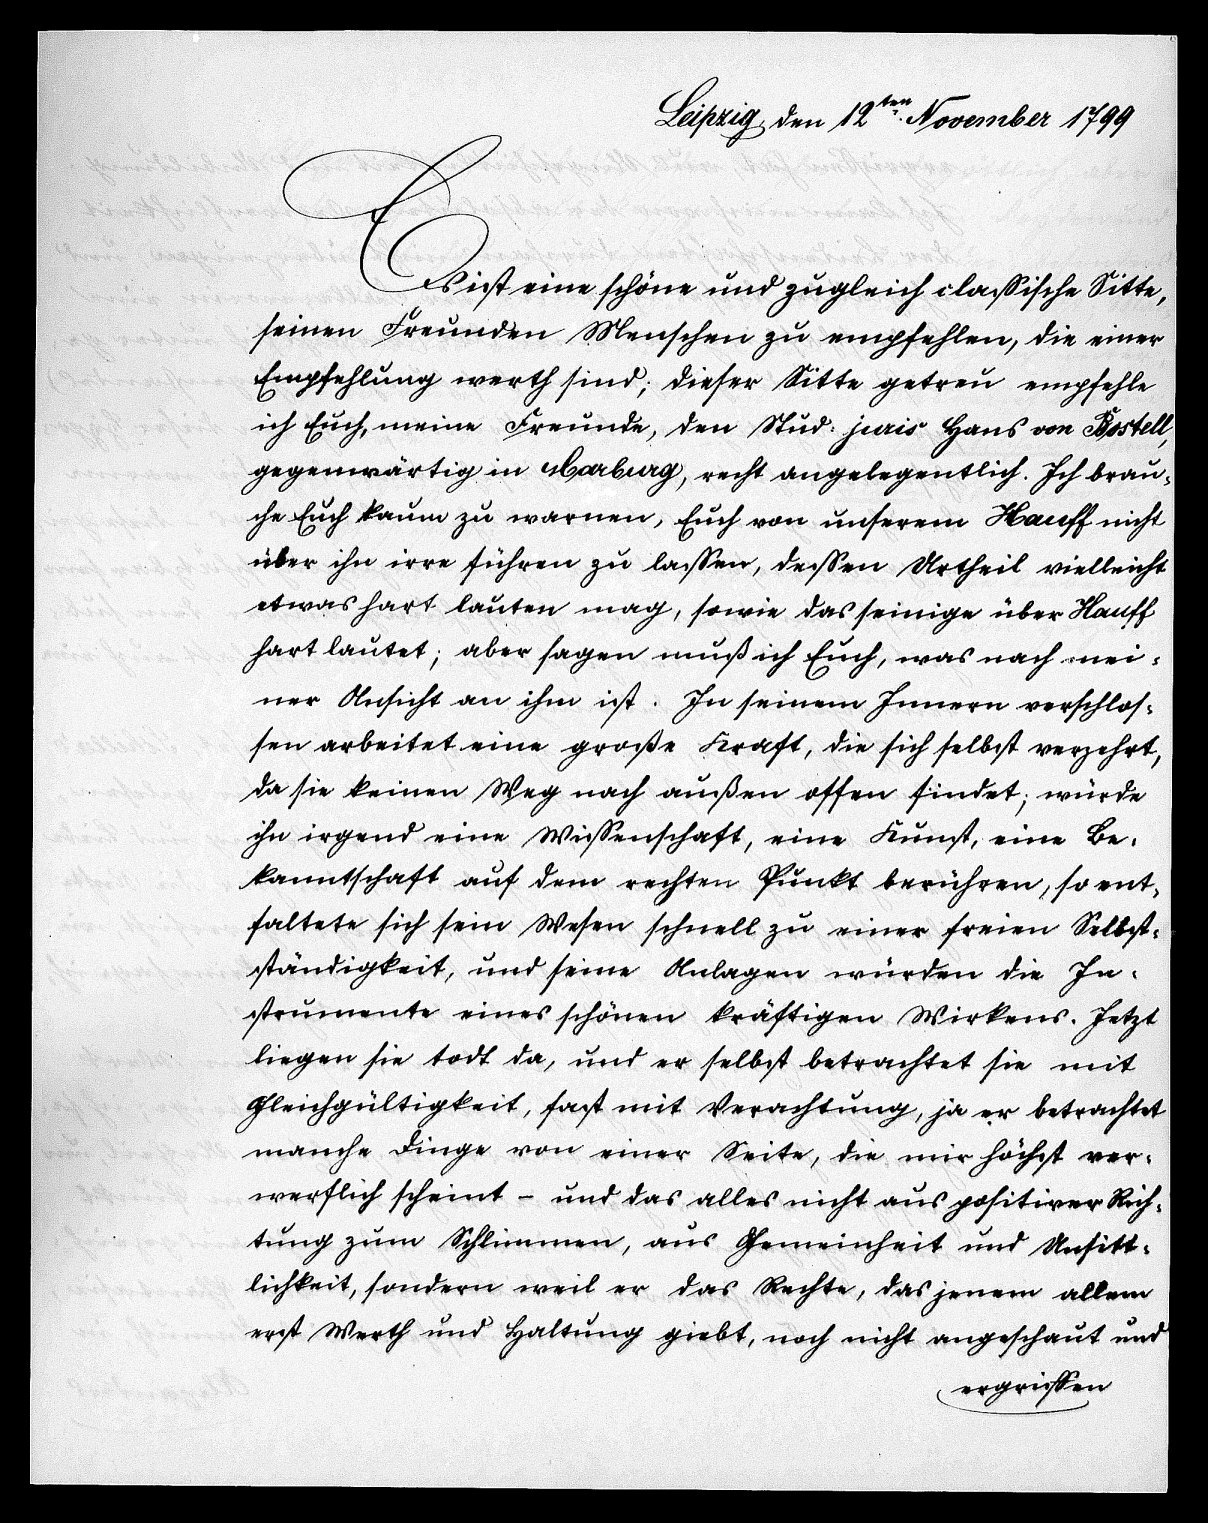 Leipzig, den 12ten November 1799
Es ist eine schöne und zugleich classische Sitte,
seinen Freunden Menschen zu empfehlen, die einer
Empfehlung werth sind; dieser Sitte getreu empfehle
ich Euch, meine Freunde, den Stud: juris Hans von Bostell,
gegenwärtig in Marburg, recht angelegentlich. Ich brau-
che Euch kaum zu warnen, Euch von unserem Hauff nicht
über ihn irre führen zu lassen, dessen Urtheil vielleicht
etwas hart lauten mag, sowie das seinige über Hauff
hart lautet; aber sagen muß ich Euch, was nach mei-
ner Ansicht an ihm ist. In seinem Innern verschlos-
sen arbeitet eine große Kraft, die sich selbst verzehrt,
da sie keinen Weg nach außen offen findet; würde
ihn irgend eine Wissenschaft, eine Kunst, eine Be-
kanntschaft auf dem rechten Punkt berühren, so ent-
faltete sich sein Wesen schnell zu einer freien Selbst-
ständigkeit, und seine Anlagen würden die In-
strumente eines schönen kräftigen Wirkens. Jetzt
liegen sie todt da, und er selbst betrachtet sie mit
Gleichgültigkeit, fast mit Verachtung, ja er betrachtet
manche Dinge von einer Seite, die mir höchst ver-
werflich scheint - und das alles nicht aus positiver Rich-
tung zum Schlimmen, aus Gemeinheit und Unsitt-
lichkeit, sondern weil er das Rechte, das jenem allem
erst Werth und Haltung giebt, noch nicht angeschaut und
ergriffen